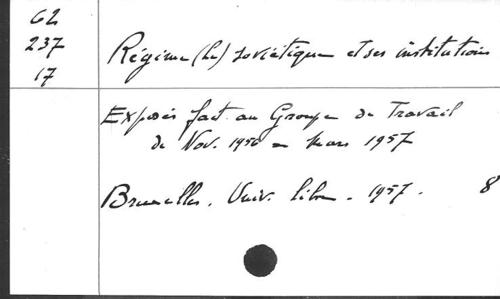 62
237
17
Régime (Le) soviétique et ses institutions
Exposés fait au Groupe de Travail
de Nov. 1956 à Mars 1957
Bruxelles. Univ. libre. 1957. 8